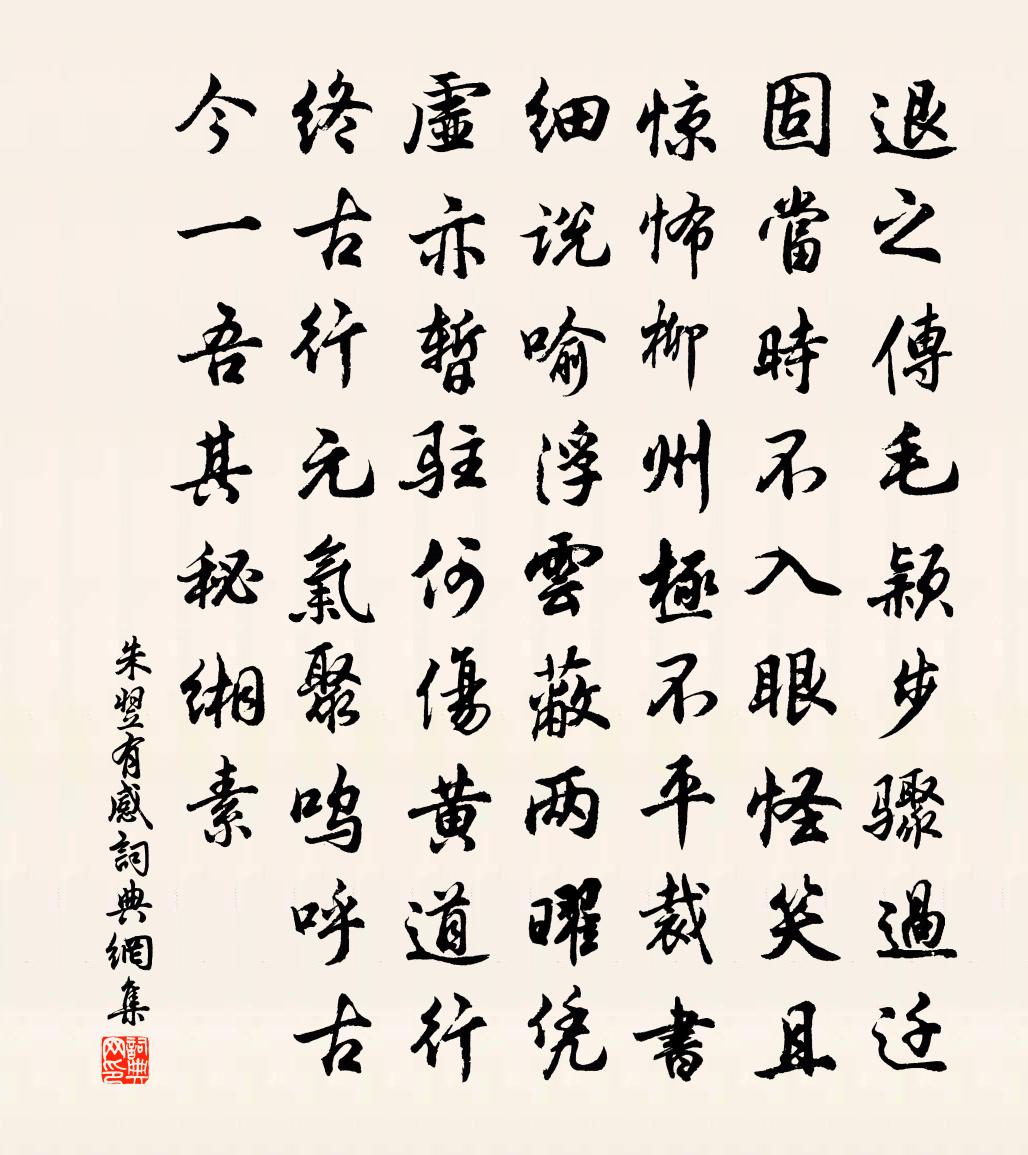 退之傳毛颖步驟過迁
固當時不入眼怪笑且
惊怖柳州極不平裁書
细说喻浮雲蔽两曜凭
虛亦暫駐何傷黄道行
终古行元氣聚鸣呼古
今一吾其秘缃素
朱翌有感詞典網集
詞典网印